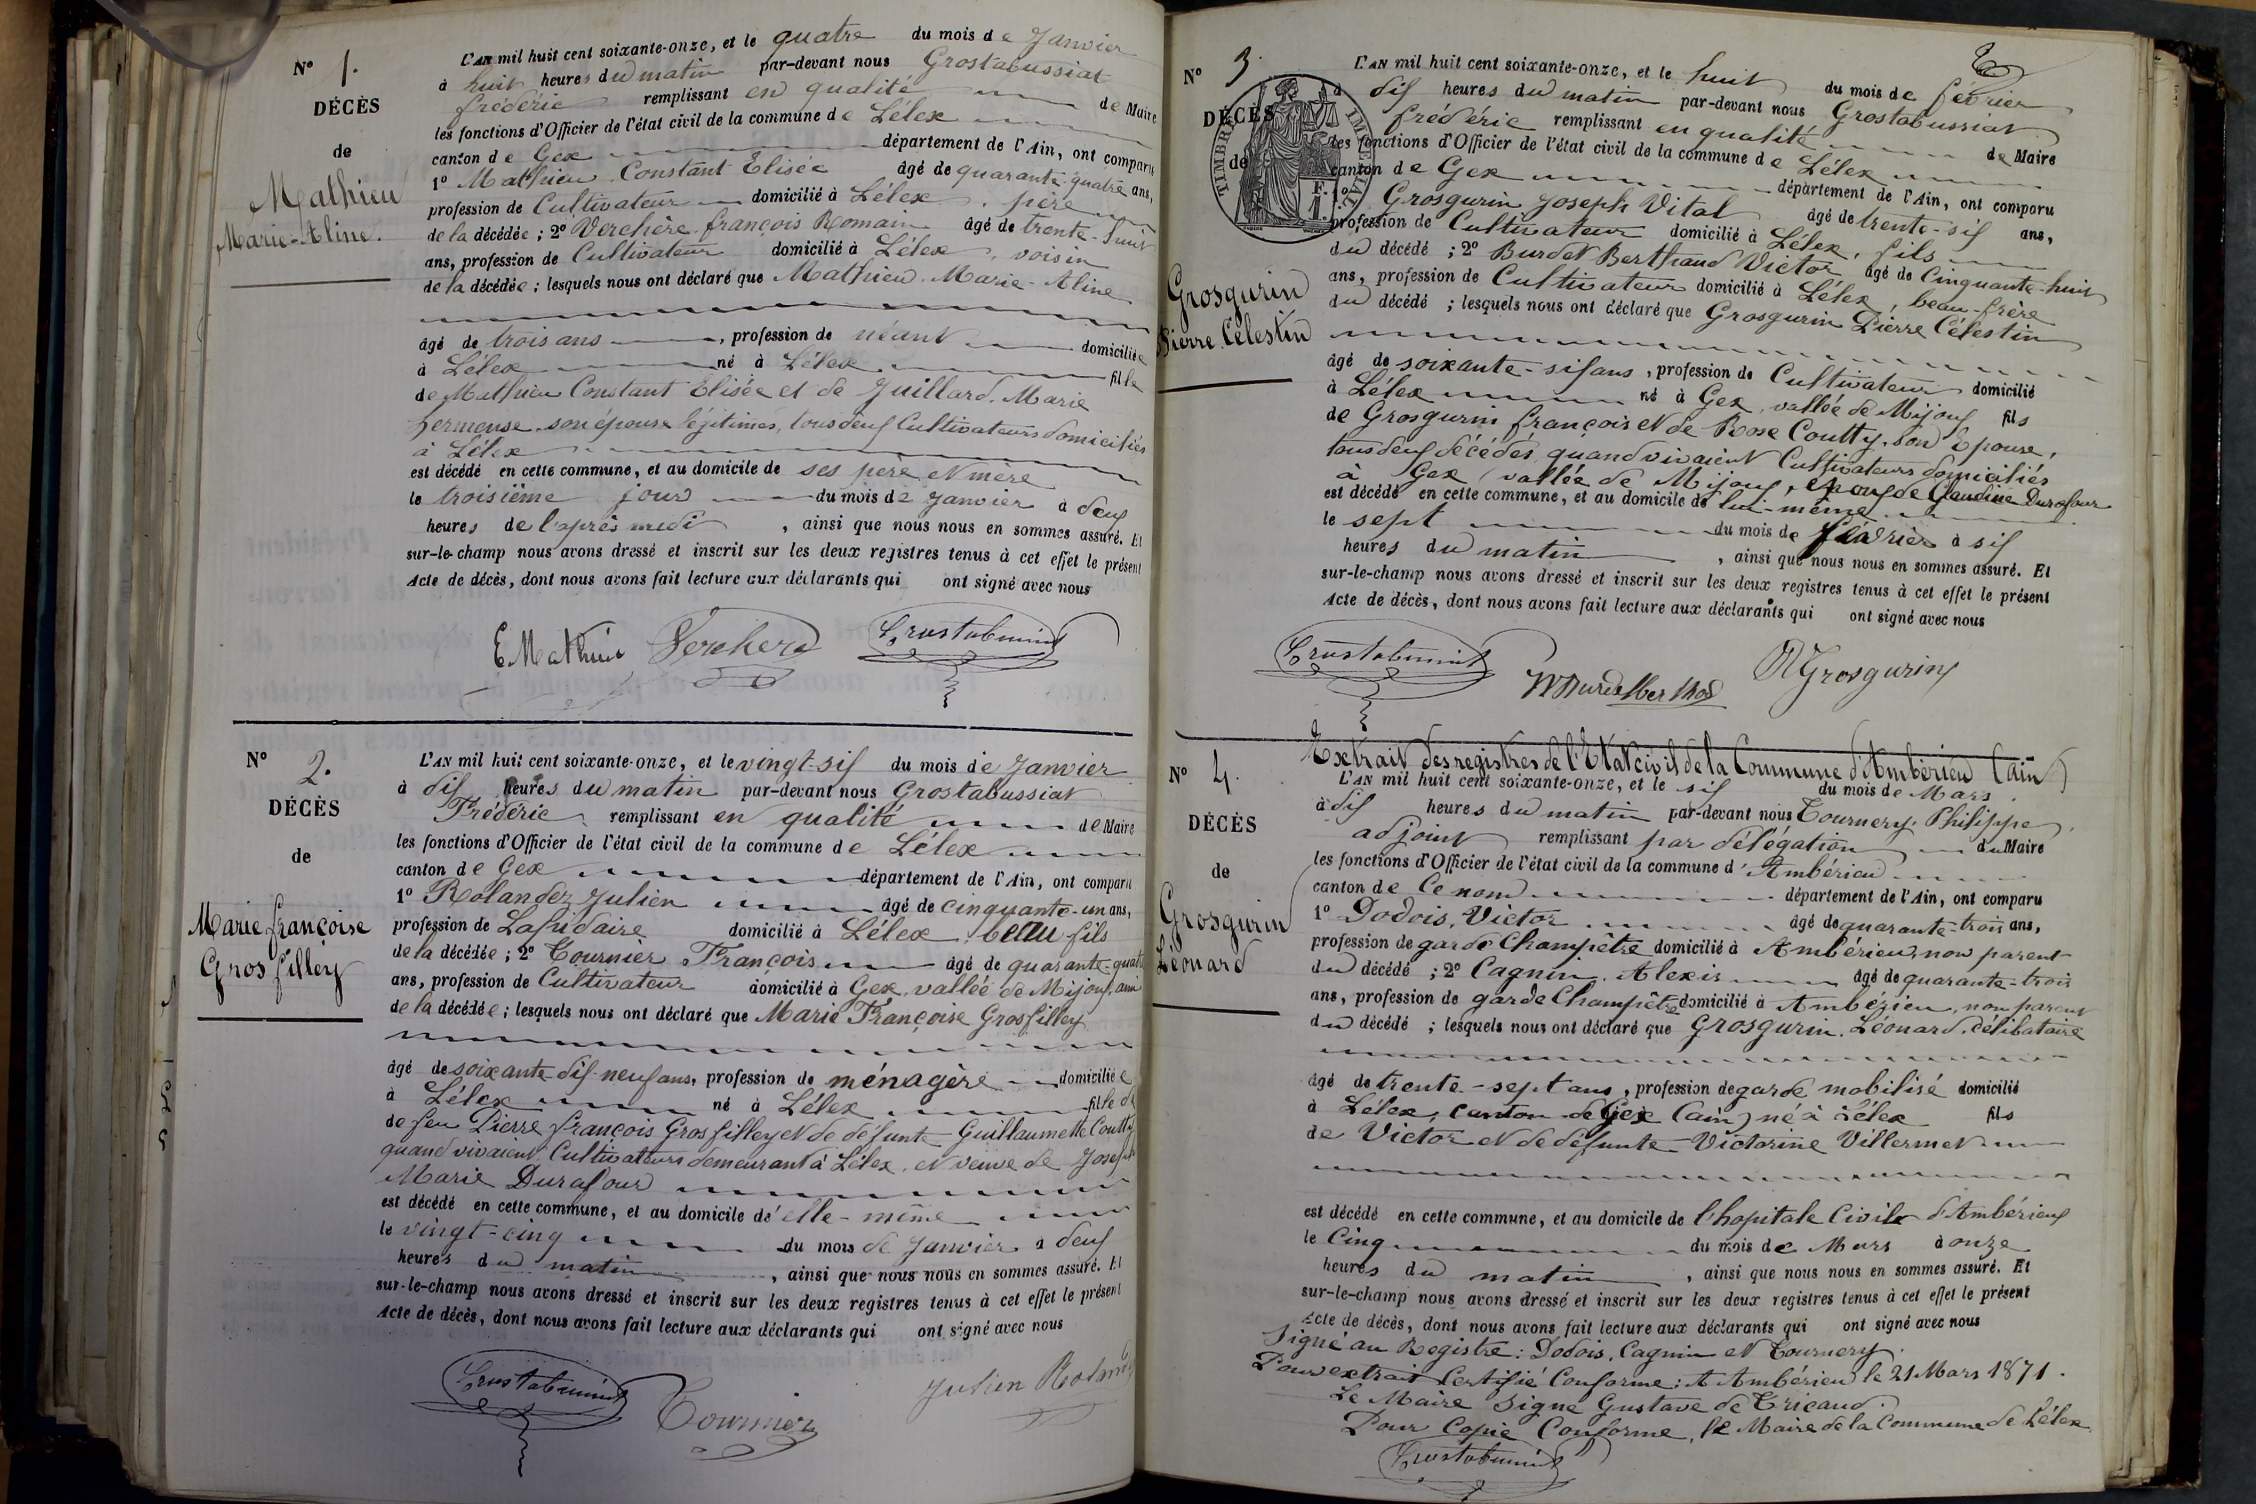 N° 1.
DÉCÈS
de
Mathieu
Marie-Aline.
L'AN mil huit cent soixante-onze, et le quatre du mois de Janvier
à huit heures du matin par-devant nous Grostabussiat
frédéric remplissant en qualité de Maire
les fonctions d'Officier de l'état civil de la commune de Lélex
canton de Gex département de l'Ain, ont comparu
1° Mathieu Constant Elisée âgé de quarante quatre ans,
profession de Cultivateur domicilié à Lélex, père
de la décédée ; 2° Verchère françois Romain âgé de trente-huit
ans, profession de Cultivateur domicilié à Lélex, voisin
de la décédée ; lesquels nous ont déclaré que Mathieu Marie-Aline
âgé de trois ans, profession de néant domiciliée
à Lélex né à Lélex fille
de Mathieu Constant Elisée et de Juillard Marie
hermense son épouse légitimes, tous deux Cultivateurs domiciliés
à Lélex
est décédé en cette commune, et au domicile de ses père et mère
le troisième jour du mois de Janvier à deux
heures de l'après midi, ainsi que nous nous en sommes assuré. Et
sur-le-champ nous avons dressé et inscrit sur les deux registres tenus à cet effet le présent
Acte de décès, dont nous avons fait lecture aux déclarants qui ont signé avec nous
E Mathieu Verchere Grostabussiat
N° 2.
DÉCÈS
de
Marie françoise
Grosfilley
L'AN mil huit cent soixante-onze, et le vingt-six du mois de Janvier
à dix heures du matin par-devant nous Grostabussiat
Frédéric remplissant en qualité de Maire
les fonctions d'Officier de l'état civil de la commune de Lélex
canton de Gex département de l'Ain, ont comparu
1° Rolandez Julien âgé de cinquante-un ans,
profession de Lapidaire domicilié à Lélex, beau fils
de la décédée ; 2° Tournier François âgé de quarante-quatre
ans, profession de Cultivateur domicilié à Gex, vallée de Mijoux, ami
de la décédée ; lesquels nous ont déclaré que Marie Françoise Grosfilley
âgé de soixante-dix-neuf ans, profession de ménagère domiciliée
à Lélex né à Lélex fille de
de feu Pierre françois Grosfilley et de défunte Guillaumette Coutty
quand vivaient Cultivateurs demeurant à Lélex, et veuve de Joseph
Marie Durafour
est décédé en cette commune, et au domicile d'elle-même
le vingt-cinq du mois de Janvier à deux
heures du matin, ainsi que nous nous en sommes assuré. Et
sur-le-champ nous avons dressé et inscrit sur les deux registres tenus à cet effet le présent
Acte de décès, dont nous avons fait lecture aux déclarants qui ont signé avec nous
Grostabussiat Tournier Julien Roland
N° 3.
DÉCÈS
de
TIMBRE IMPÉRIAL
F.
1.
Grosgurin
Pierre Célestin
L'AN mil huit cent soixante-onze, et le huit du mois de février
à dix heures du matin par-devant nous Grostabussiat
frédéric remplissant en qualité de Maire
les fonctions d'Officier de l'état civil de la commune de Lélex
canton de Gex département de l'Ain, ont comparu
1° Grosgurin Joseph Vital âgé de trente-six ans,
profession de Cultivateur domicilié à Lélex, fils
du décédé ; 2° Burdet Berthaud Victor âgé de Cinquante-huit
ans, profession de Cultivateur domicilié à Lélex, beau-frère
du décédé ; lesquels nous ont déclaré que Grosgurin Pierre Célestin
âgé de soixante-six ans, profession de Cultivateur domicilié
à Lélex né à Gex, vallée de Mijoux fils
de Grosgurin françois et de Rose Coutty, son Epouse,
tous deux décédés, quand vivaient Cultivateurs domiciliés
à Gex, vallée de Mijoux, époux de Claudine Durafour
est décédé en cette commune, et au domicile de lui-même
le sept du mois de février à six
heures du matin, ainsi que nous nous en sommes assuré. Et
sur-le-champ nous avons dressé et inscrit sur les deux registres tenus à cet effet le présent
Acte de décès, dont nous avons fait lecture aux déclarants qui ont signé avec nous
Grostabussiat Grosgurin
Extrait des registres de l'Etat civil de la Commune d'Ambérieu (ain)
N° 4.
DÉCÈS
de
Grosgurin
Léonard
L'AN mil huit cent soixante-onze, et le six du mois de Mars
à dix heures du matin par-devant nous Tournery Philippe,
adjoint remplissant par délégation du Maire
les fonctions d'Officier de l'état civil de la commune d'Ambérieu
canton de Ce nom département de l'Ain, ont comparu
1° Dodois, Victor âgé de quarante-trois ans,
profession de garde Champêtre domicilié à Ambérieu, non parent
du décédé ; 2° Cagnin, Alexis âgé de quarante-trois
ans, profession de garde Champêtre domicilié à Ambérieu, non parent
du décédé ; lesquels nous ont déclaré que Grosgurin Léonard, célibataire
âgé de trente-sept ans, profession de garde mobilisé domicilié
à Lélex, canton de Gex (ain) né à Lélex fils
de Victor et de défunte Victorine Villermet
est décédé en cette commune, et au domicile de l'hopitale Civile d'Ambérieux
le Cinq du mois de Mars à onze
heures du matin, ainsi que nous nous en sommes assuré. Et
sur-le-champ nous avons dressé et inscrit sur les deux registres tenus à cet effet le présent
Acte de décès, dont nous avons fait lecture aux déclarants qui ont signé avec nous
Signé au Registre : Dodois, Cagnin et Tournery.
Pour extrait Certifié Conforme : A Ambérieu le 21 Mars 1871.
Le Maire Signe Gustave de Tricaud.
Pour Copie Conforme, le Maire de la Commune de Lélex
Grostabussiat